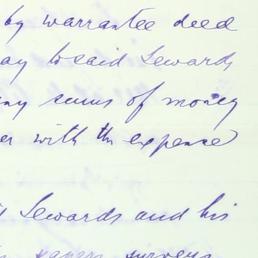 by warrantee deed
ay to said Sewards
ny sums of money
er with the expense
Sewards and his
papers, surveys